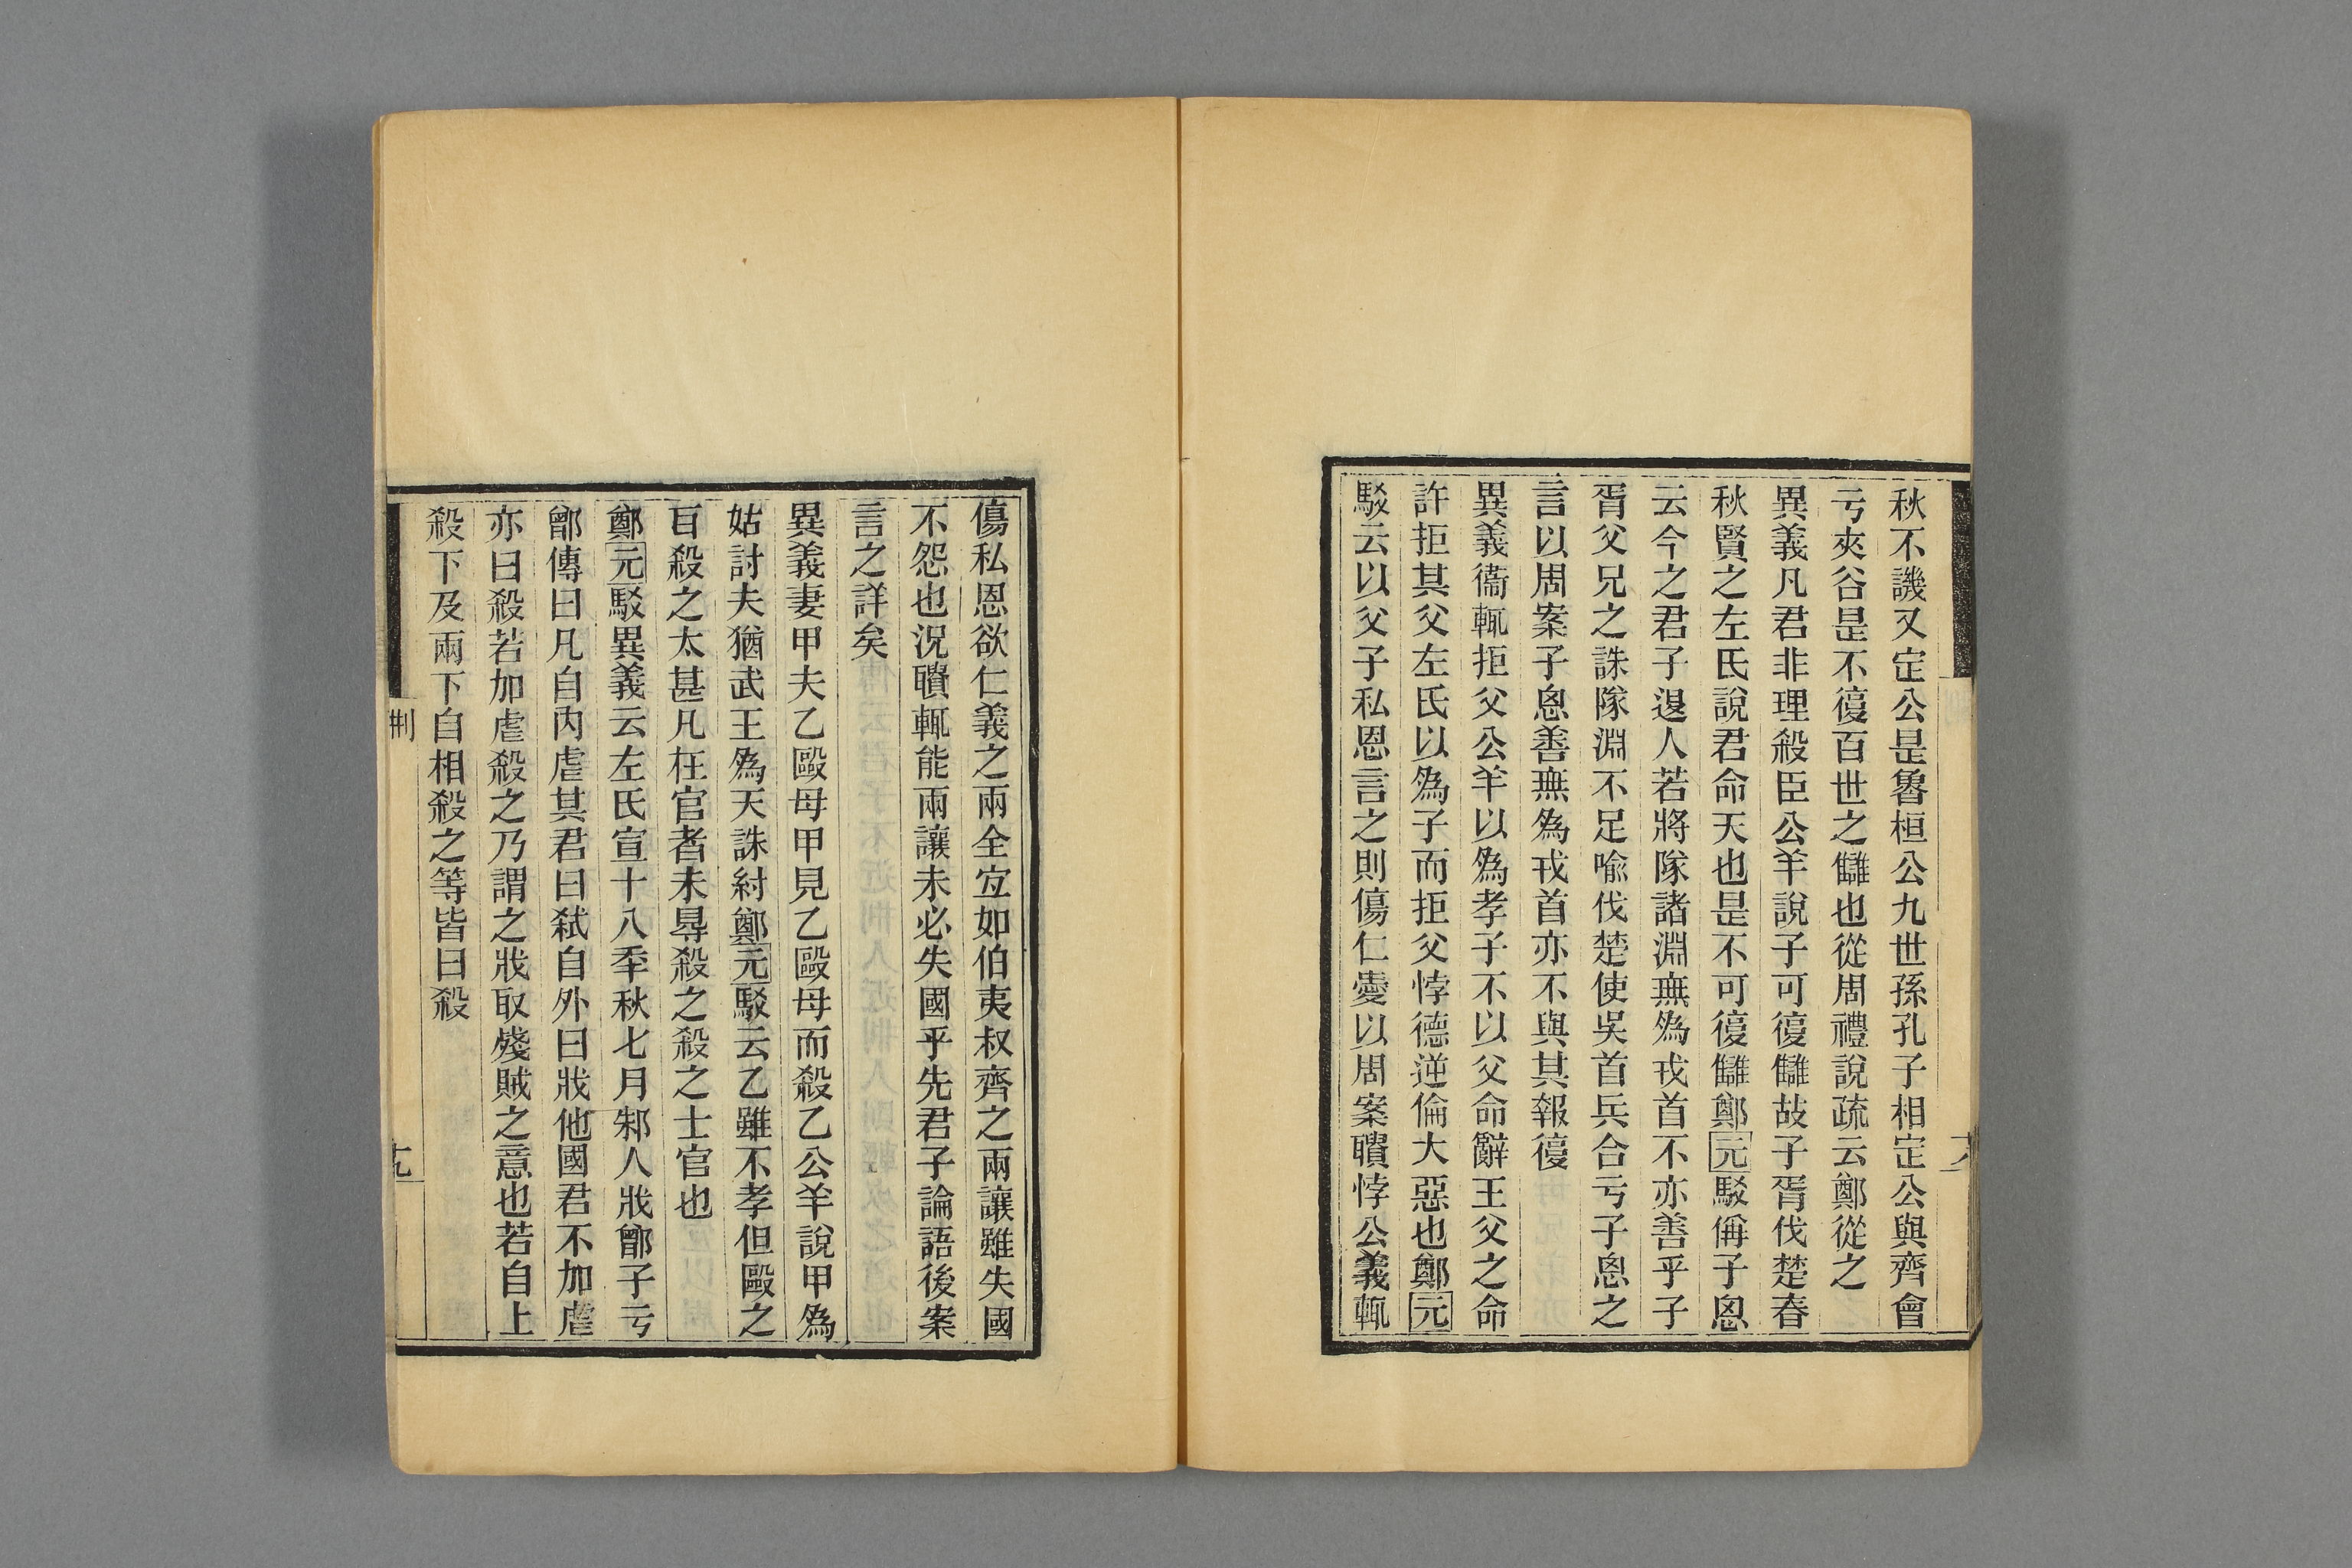 秋不譏又定公是魯桓公九世孫孔子相定公與齊會
亏夾谷是不復百世之讎也從周禮說疏云鄭從之
異義凡君非理殺臣公羊說子可復讎故子胥伐楚春
秋賢之左氏說君命天也是不可復讎鄭元駁偁子恖
云今之君子退人若將隊諸淵無爲戎首不亦善乎子
胥父兄之誅隊淵不足喻伐楚使吳首兵合亏子恖之
言以周案子恖善無爲戎首亦不與其報復
異義衞輒拒父公羊以爲孝子不以父命辭王父之命
許拒其父左氏以爲子而拒父悖德逆倫大惡也鄭元
駁云以父子私恩言之則傷仁㤅以周案聵悖公義輒
傷私恩欲仁義之兩全宐如伯夷叔齊之兩讓雖失國
不怨也況聵輒能兩讓未必失國乎先君子論語後案
言之詳矣
異義妻甲夫乙毆母甲見乙毆母而殺乙公羊說甲爲
姑討夫猶武王爲天誅紂鄭元駁云乙雖不孝但毆之
㠯殺之太甚凡在官者未㝵殺之殺之士官也
鄭元駁異義云左氏宣十八秊秋七月邾人戕鄫子亏
鄫傳曰凡自内虐其君曰弑自外曰戕他國君不加虐
亦曰殺若加虐殺之乃謂之戕取殘賊之意也若自上
殺下及兩下自相殺之等皆曰殺
荆
十九